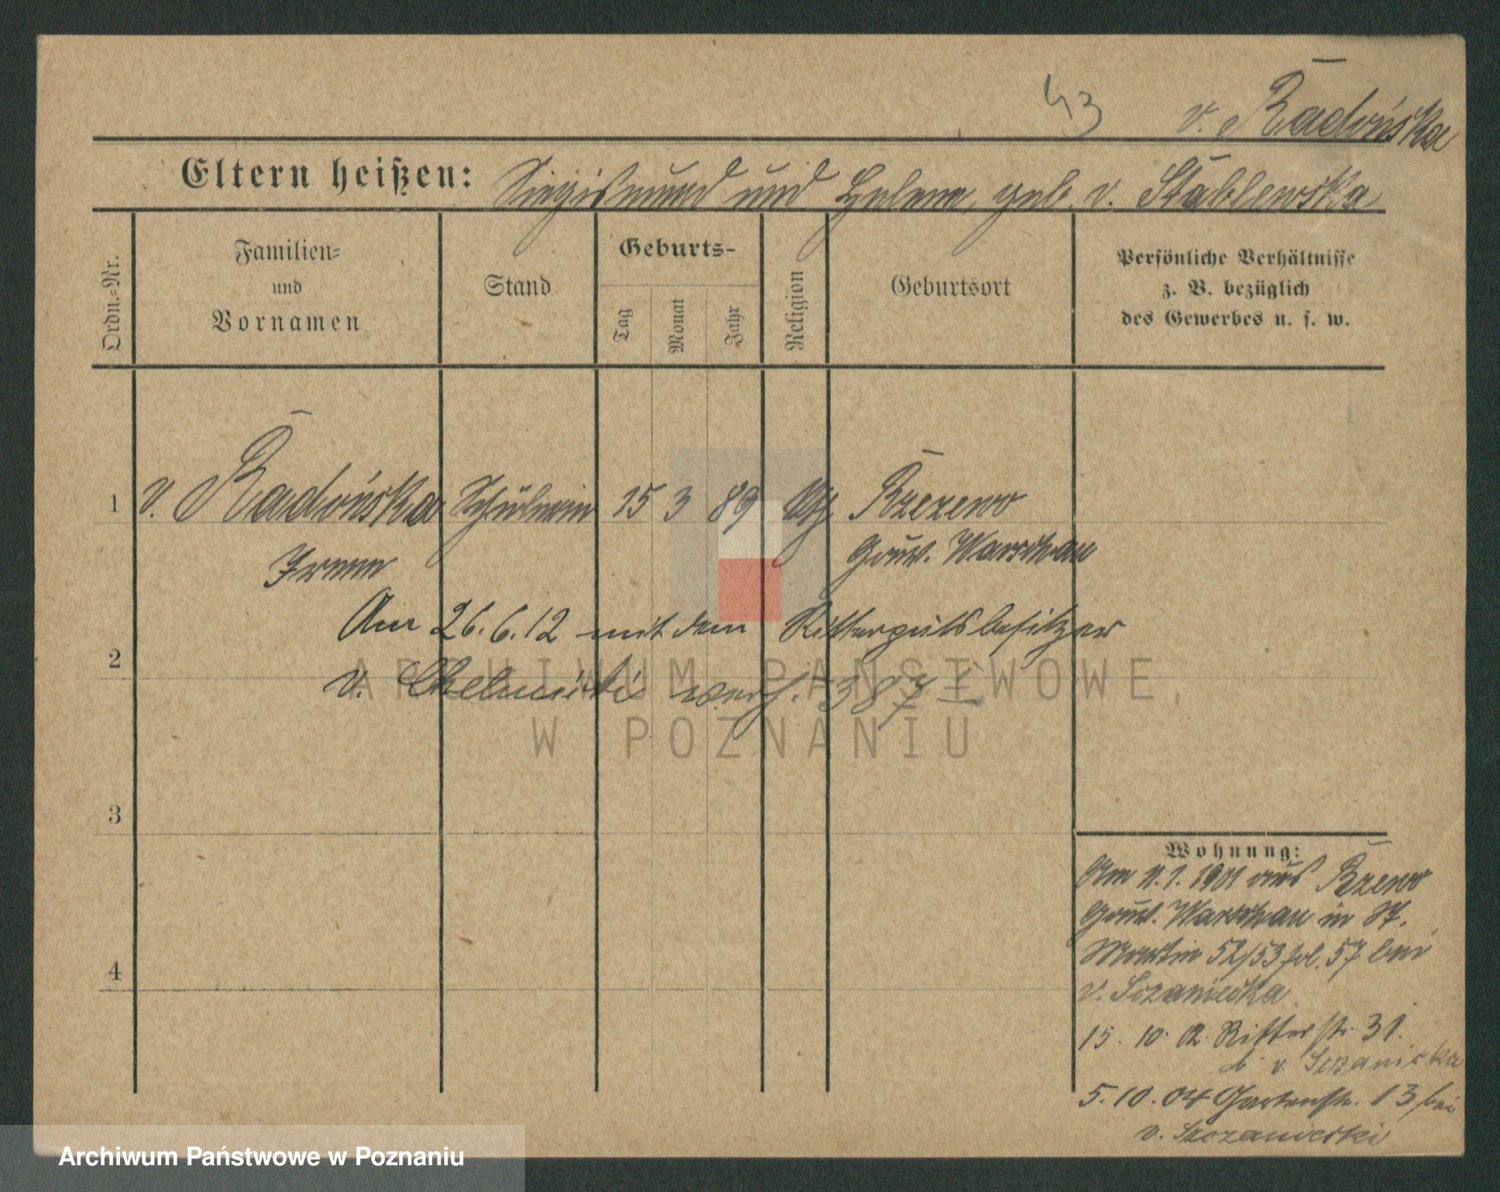 43
v. Radońska
Eltern heißen: Siegismund und Helene, geb. v. Stablewska
Ordn.-Nr.
Familien-
und
Vornamen
Stand
Geburts-
Tag
Monat
Jahr
Religion
Geburtsort
Persönliche Verhältnisse
z. B. bezüglich
des Gewerbes u. s. w.
1 v. Radońska Schülerin 15 3 89 Kth.
Gouv. Warschau
Irene
Am 26.6.12 mit dem Rittergutsbesitzer
2
v. Chelmicki verh. 387
3
4
Wohnung:
Am 11.1.1901 aus
Gouv. Warschau in St.
Martin 52/53 fol. 57 bei
v. Sczaniecka
15. 10. 02. Ritterstr. 31.
b. v. Sczaniecka
5.10.04 Gartenstr. 13 bei
v. Sczaniecki
ARCHIWUM PAŃSTWOWE
W POZNANIU
Archiwum Państwowe w Poznaniu